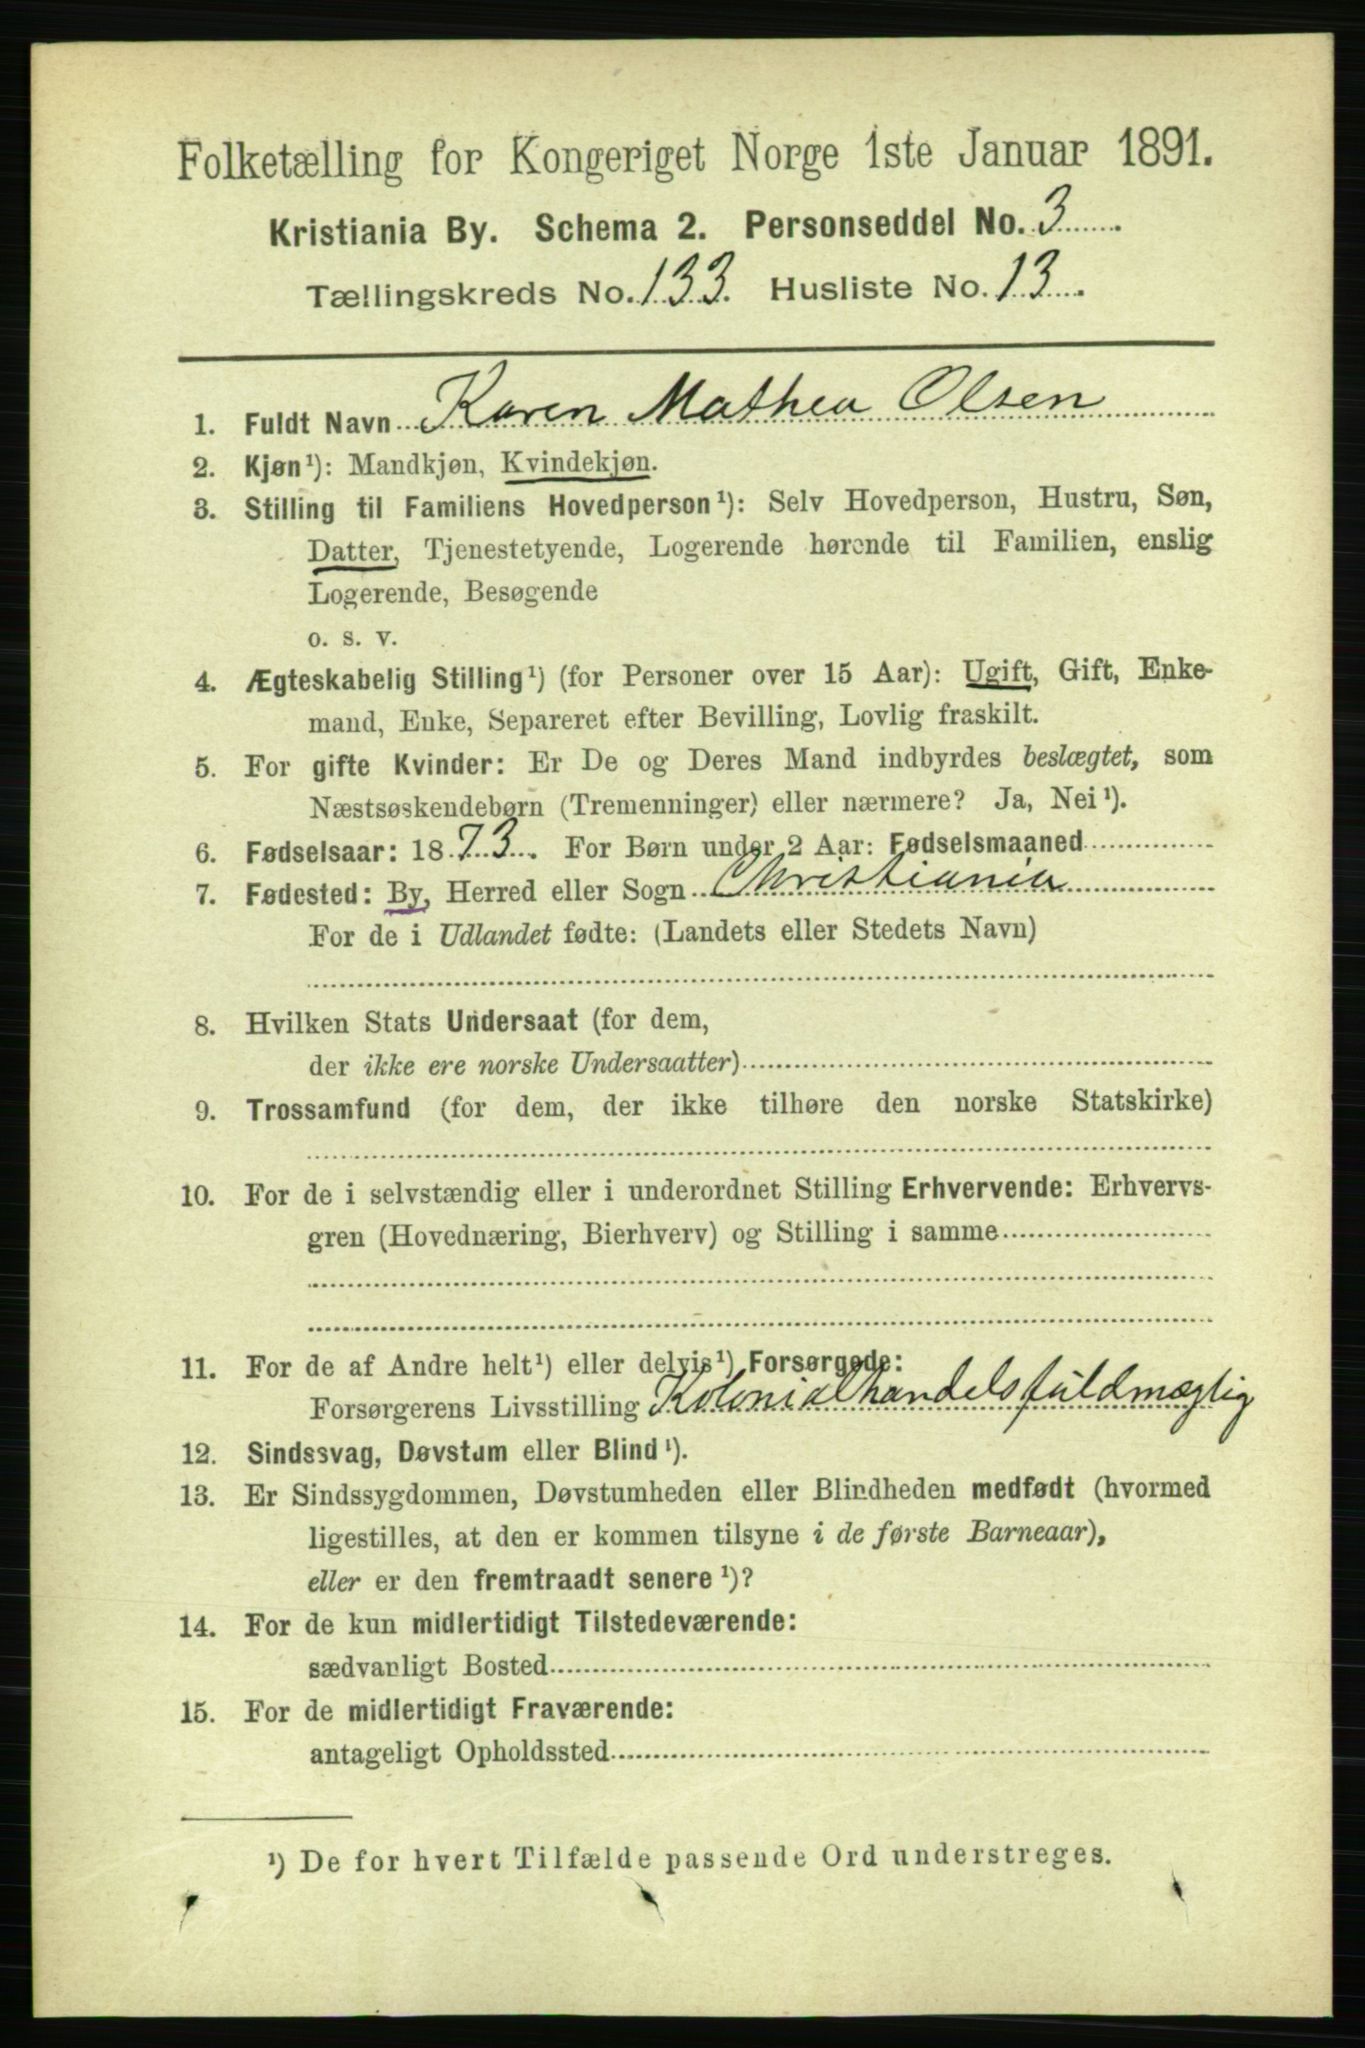 Folketælling for Kongeriget Norge 1ste Januar 1891.
Kristiania By. Schema 2. Personseddel No. 3
Tællingskreds No. 133. Husliste No. 13.
1. Fuldt Navn Karen Mathea Olsen
2. Kjøn¹): Mandkjøn, Kvindekjøn.
3. Stilling til Familiens Hovedperson¹): Selv Hovedperson, Hustru, Søn,
Datter, Tjenestetyende, Logerende hørende til Familien, enslig
Logerende, Besøgende
o. s. v.
4. Ægteskabelig Stilling¹) (for Personer over 15 Aar): Ugift, Gift, Enke-
mand, Enke, Separeret efter Bevilling, Lovlig fraskilt.
5. For gifte Kvinder: Er De og Deres Mand indbyrdes beslægtet, som
Næstsøskendebørn (Tremenninger) eller nærmere? Ja, Nei¹).
6. Fødselsaar: 1873. For Børn under 2 Aar: Fødselsmaaned
7. Fødested: By, Herred eller Sogn Christiania
For de i Udlandet fødte: (Landets eller Stedets Navn)
8. Hvilken Stats Undersaat (for dem,
der ikke ere norske Undersaatter)
9. Trossamfund (for dem, der ikke tilhøre den norske Statskirke)
10. For de i selvstændig eller i underordnet Stilling Erhvervende: Erhvervs-
gren (Hovednæring, Bierhverv) og Stilling i samme
11. For de af Andre helt¹) eller delvis¹) Forsørgede:
Forsørgerens Livsstilling Kolonialhandelsfuldmægtig
12. Sindssvag, Døvstum eller Blind¹).
13. Er Sindssygdommen, Døvstumheden eller Blindheden medfødt (hvormed
ligestilles, at den er kommen tilsyne i de første Barneaar),
eller er den fremtraadt senere¹)?
14. For de kun midlertidigt Tilstedeværende:
sædvanligt Bosted
15. For de midlertidigt Fraværende:
antageligt Opholdssted
¹) De for hvert Tilfælde passende Ord understreges.